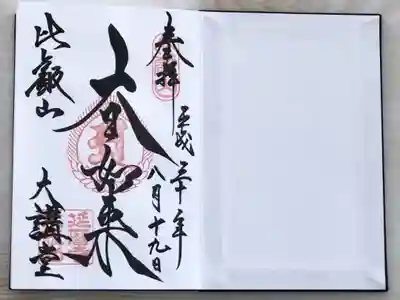 奉拝
平成三十年
八月十九日
大日如来
比叡山
大講堂